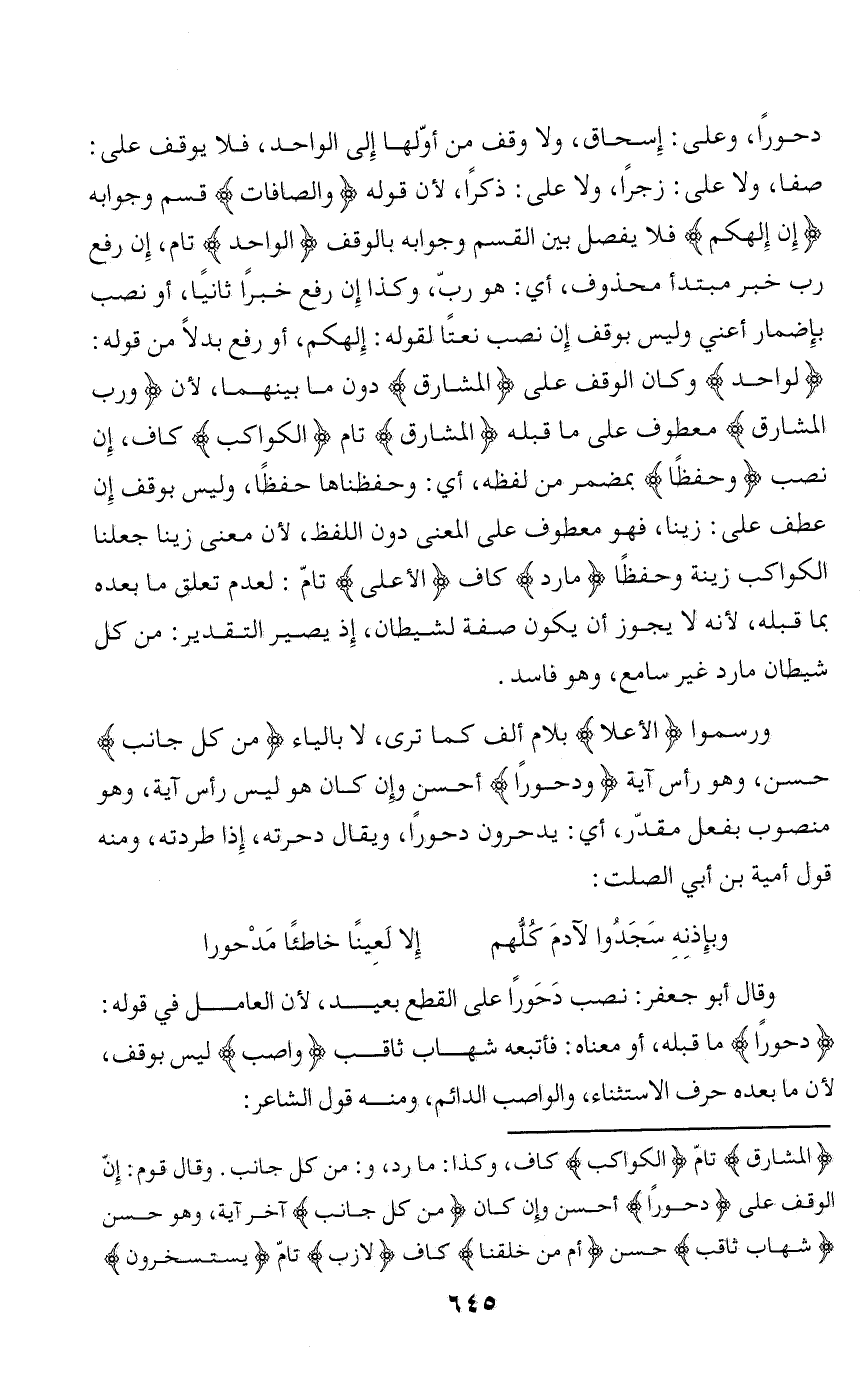 دحورًا، وعلى: إسحاق، ولا وقف من أوّلها إلى الواحد، فلا يوقف على:
صفا، ولا على: زجرًا، ولا على: ذكرًا، لأن قوله ﴿والصافات﴾ قسم وجوابه
﴿إن إلهكم﴾ فلا يفصل بين القسم وجوابه بالوقف ﴿الواحد﴾ تام، إن رفع
رب خبر مبتدأ محذوف، أي: هو ربّ، وكذا إن رفع خبرًا ثانيًا، أو نصب
بإضمار أعني وليس بوقف إن نصب نعتًا لقوله: إلهكم، أو رفع بدلاً من قوله:
﴿لواحد﴾ وكان الوقف على ﴿المشارق﴾ دون ما بينهما، لأن ﴿ورب
المشارق﴾ معطوف على ما قبله ﴿المشارق﴾ تام ﴿الكواكب﴾ كاف، إن
نصب ﴿وحفظًا﴾ بمضمر من لفظه، أي: وحفظناها حفظًا، وليس بوقف إن
عطف على: زينا، فهو معطوف على المعنى دون اللفظ، لأن معنى زينا جعلنا
الكواكب زينة وحفظًا ﴿مارد﴾ كاف ﴿الأعلى﴾ تامّ: لعدم تعلق ما بعده
بما قبله، لأنه لا يجوز أن يكون صفة لشيطان، إذ يصير التقدير: من كل
شيطان مارد غير سامع، وهو فاسد.
ورسموا ﴿الأعلا﴾ بلام ألف كما ترى، لا بالياء ﴿من كل جانب﴾
حسن، وهو رأس آية ﴿ودحورًا﴾ أحسن وإن كان هو ليس رأس آية، وهو
منصوب بفعل مقدّر، أي: يدحرون دحورًا، ويقال دحرته، إذا طردته، ومنه
قول أمية بن أبي الصلت:
وبإذنِهِ سَجَدُوا لآدمَ كُلُّهم إلا لَعِينًا خاطئًا مَدْحورا
وقال أبو جعفر: نصب دَحَورًا على القطع بعيد، لأن العامل في قوله:
﴿دحورًا﴾ ما قبله، أو معناه: فأتبعه شهاب ثاقب ﴿واصب﴾ ليس بوقف،
لأن ما بعده حرف الاستثناء، والواصب الدائم، ومنه قول الشاعر:
﴿المشارق﴾ تامّ ﴿الكواكب﴾ كاف، وكذا: مارد، و: من كل جانب. وقال قوم: إنّ
الوقف على ﴿دحورًا﴾ أحسن وإن كان ﴿من كل جانب﴾ آخر آية، وهو حسن
﴿شهاب ثاقب﴾ حسن ﴿أم من خلقنا﴾ كاف ﴿لازب﴾ تامّ ﴿يستسخرون﴾
٦٤٥